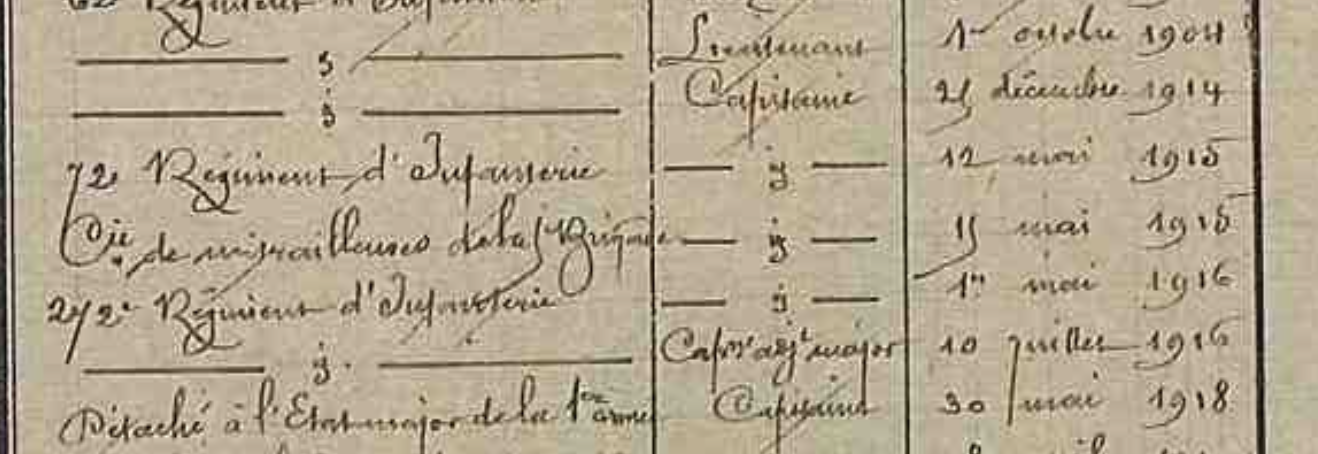 62e Régiment d'Infanterie
— " — Lieutenant 1er octobre 1904
— " — Capitaine 25 décembre 1914
72e Régiment d'Infanterie — " — 12 mai 1915
Cie de mitrailleuses de la 5e Brigade — " — 15 mai 1915
272e Régiment d'Infanterie — " — 1er mai 1916
— " — Capne adjt major 10 juillet 1916
Détaché à l'Etat major de la 1ère armée Capitaine 30 mai 1918